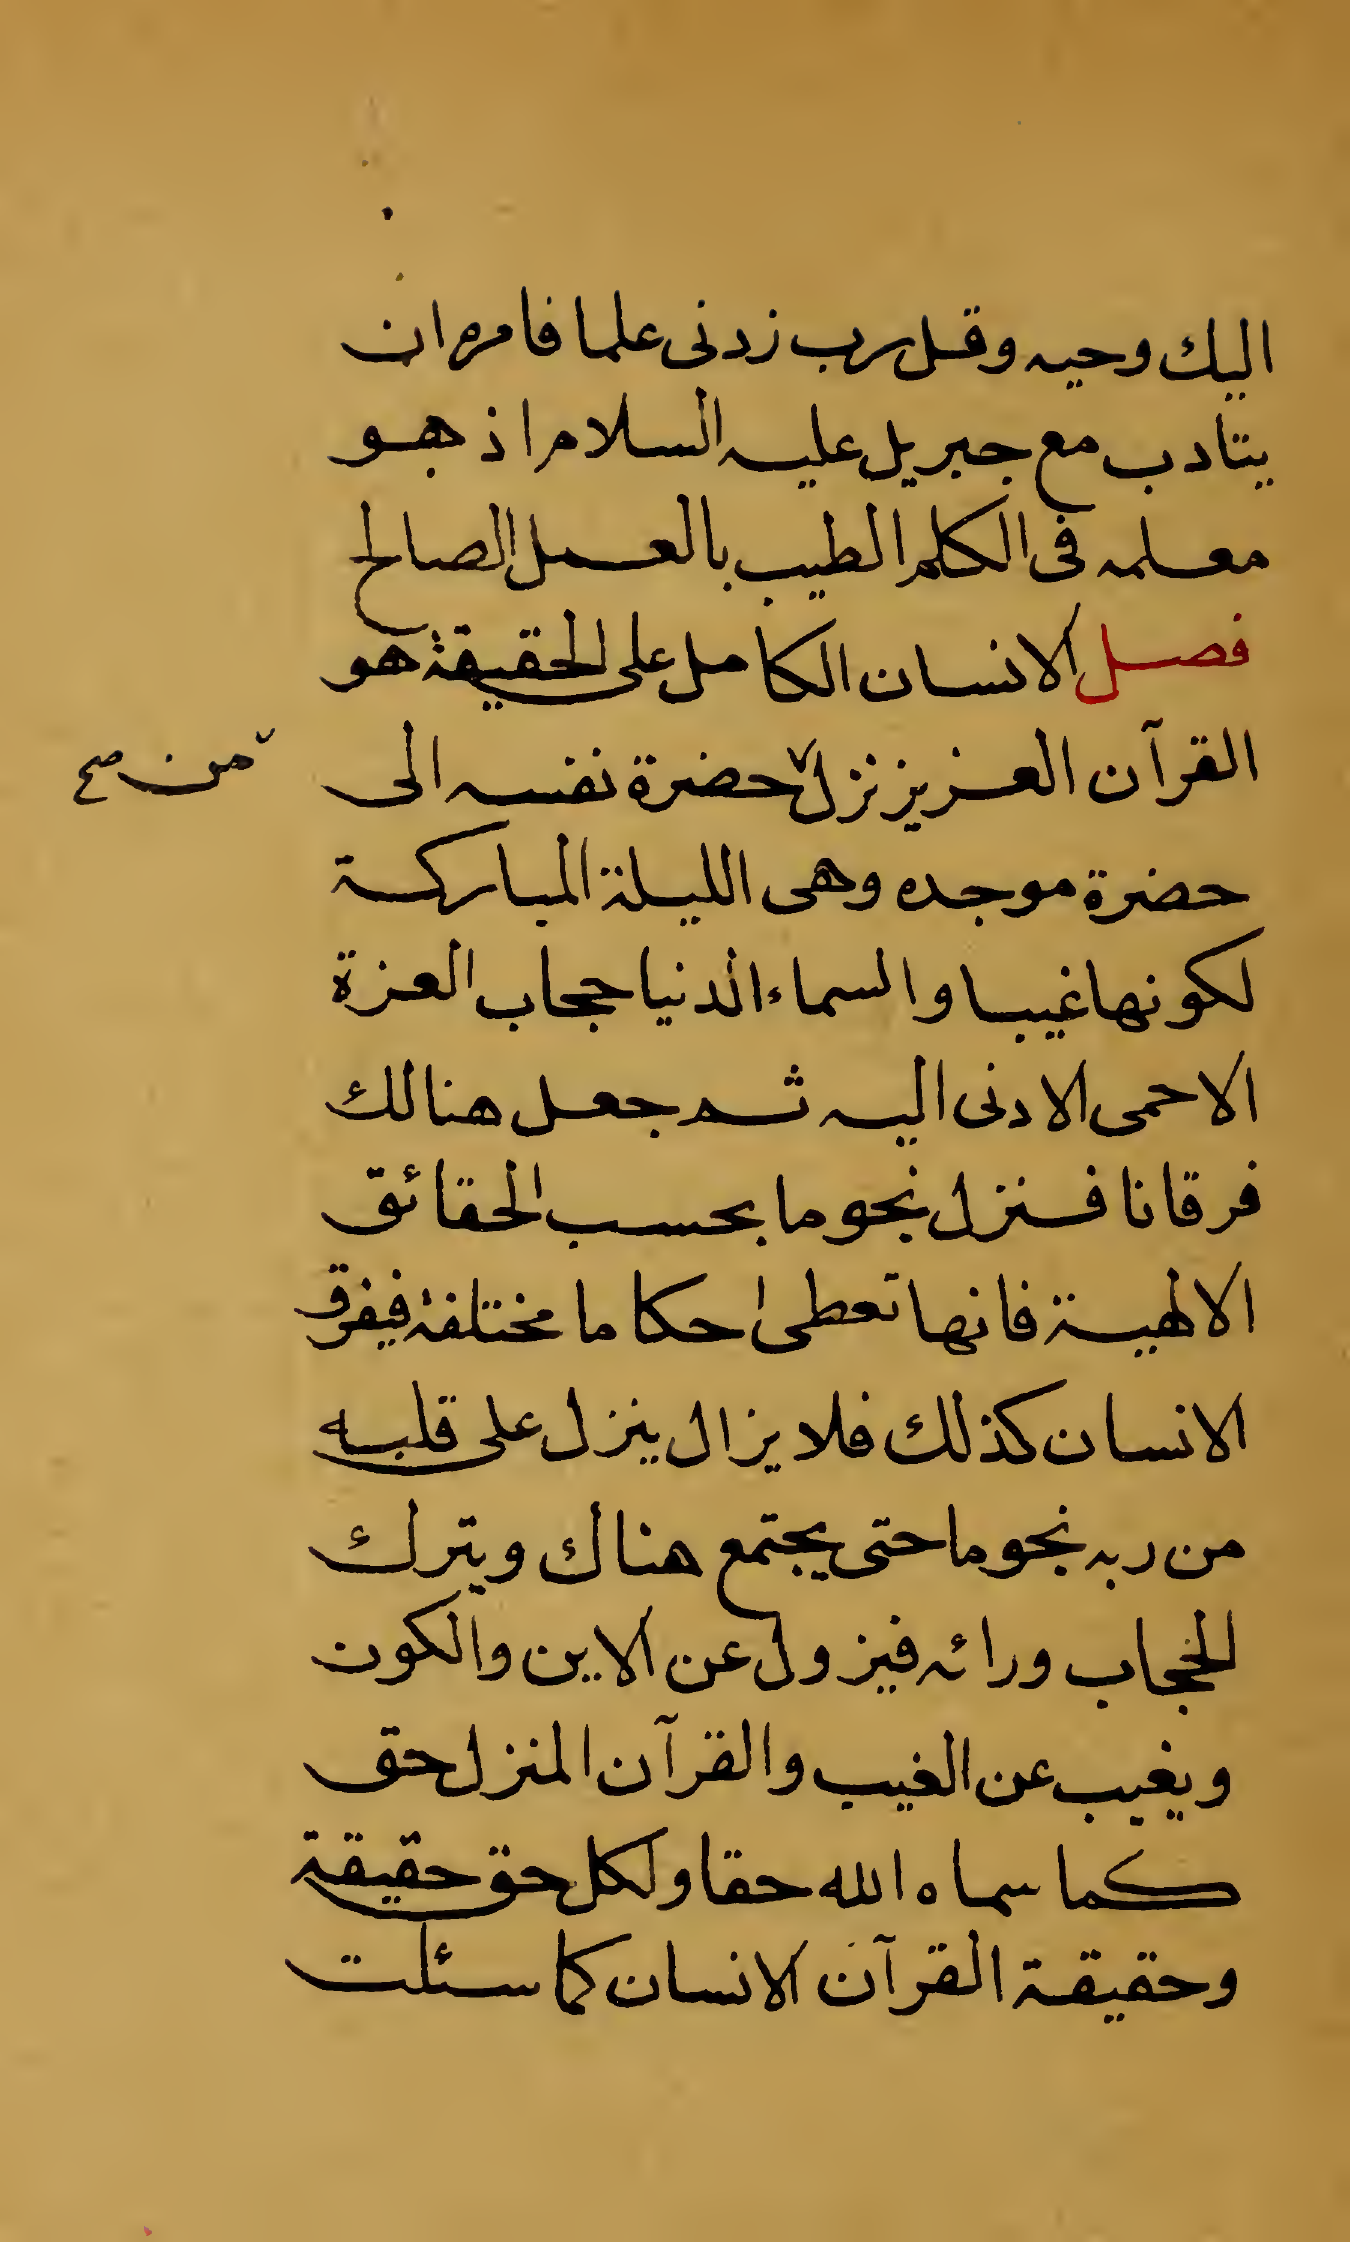 اليك وحيه وقل رب زدنى علما فامره ان
يتادب مع جبريل عليه السلام اذ هو
معلمه فى الكلم الطيب بالعمل الصالح
فصل الانسان الكامل على الحقيقة هو
القرآن العزيز نزل حضرة نفسه الى
من صح
حضرة موجده وهى الليلة المباركة
لكونها غيبا والسماء الدنيا حجاب العزة
الاحمى الادنى اليه ثم جعل هنالك
فرقانا فنزل نجوما بحسب الحقائق
الالهية فانها تعطى احكاما مختلفة فيفرق
الانسان كذلك فلا يزال ينزل على قلبه
من ربه نجوما حتى يجتمع هناك ويترك
الحجاب ورائه فيزول عن الاين والكون
ويغيب عن الغيب والقرآن المنزل حق
كما سماه الله حقا ولكل حق حقيقة
وحقيقة القرآن الانسان كما سئلت